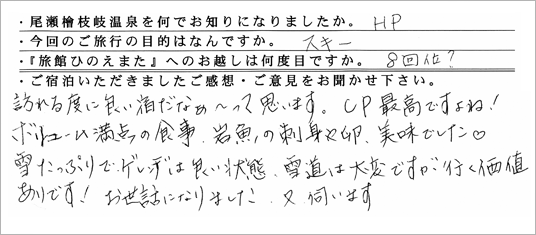 ・尾瀬檜枝岐温泉を何でお知りになりましたか。 HP
・今回のご旅行の目的はなんですか。 スキー
・『旅館ひのえまた』へのお越しは何度目ですか。 8回位?
・ご宿泊いただきましたご感想・ご意見をお聞かせ下さい。
訪れる度に良い宿だなぁ〜って思います。CP最高ですよね!
ボリューム満点の食事、岩魚の刺身や卵、美味でした♡
雪たっぷりでゲレンデは良い状態、雪道は大変ですが、行く価値
ありです! お世話になりました。又伺います